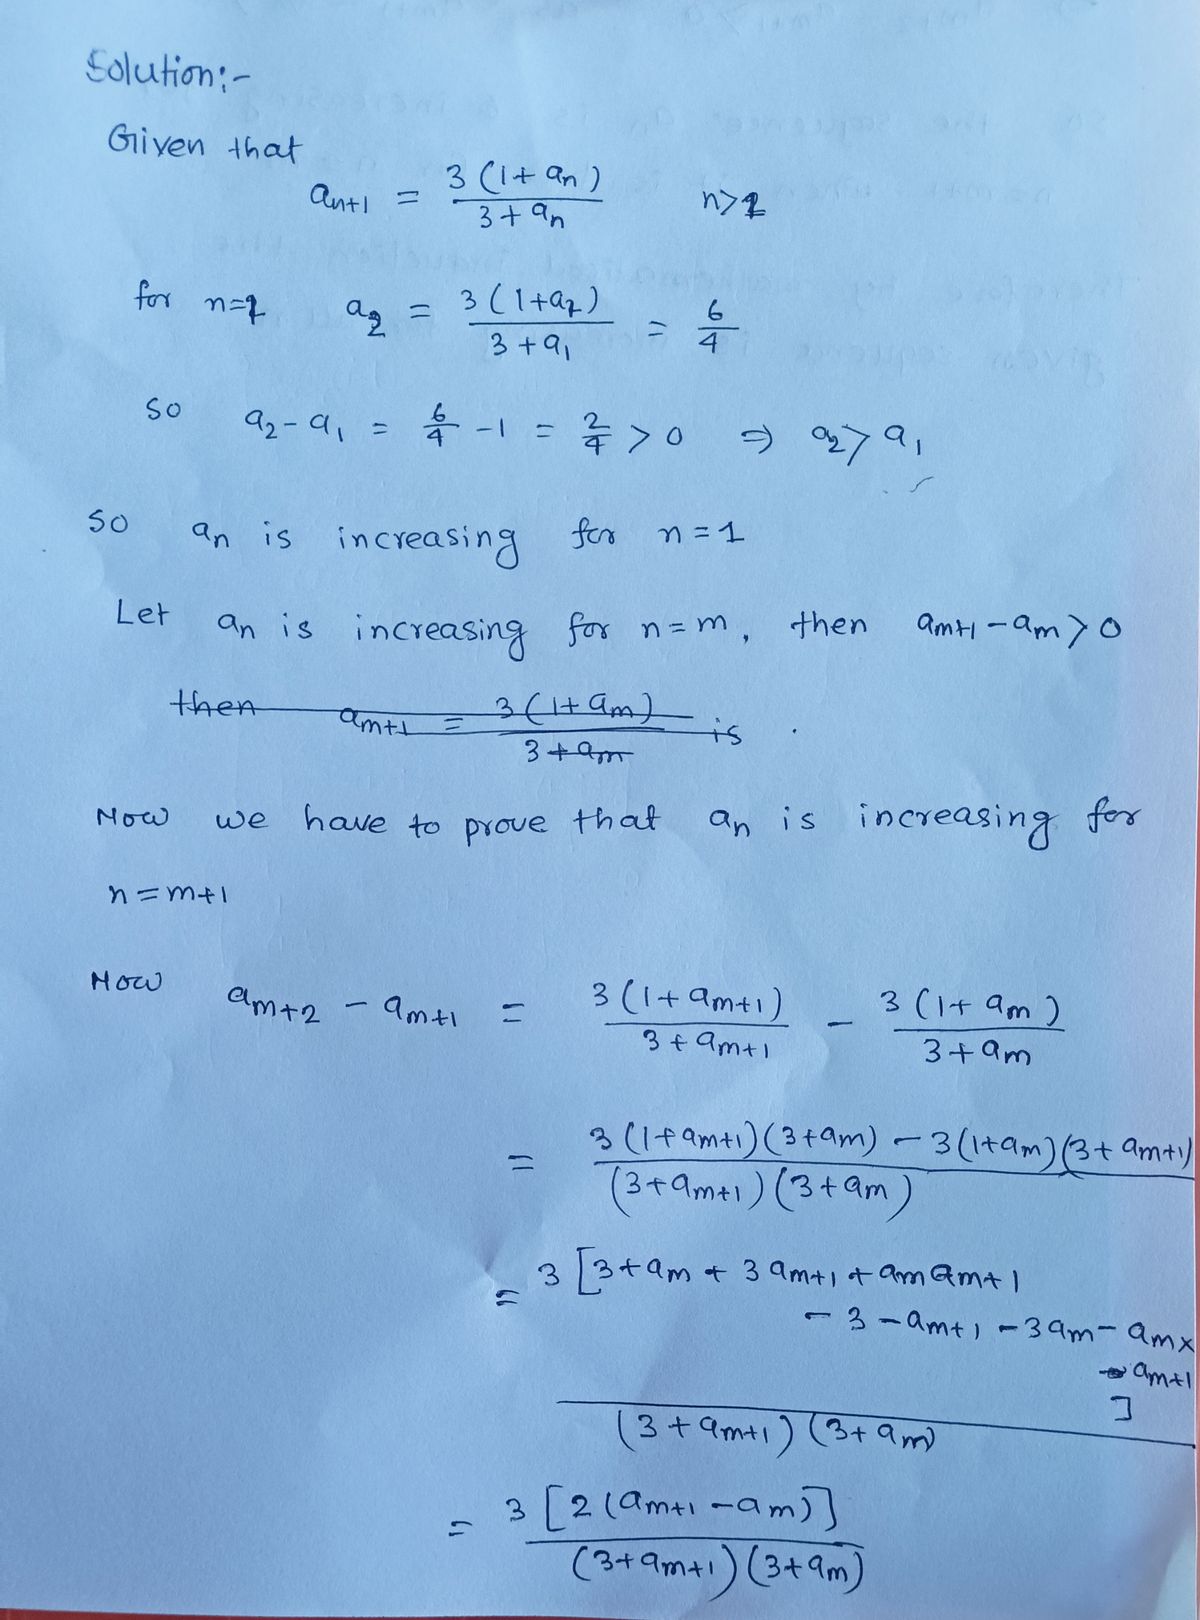 Solution:-
Given that
an+1 = 3 (1 + an) / 3 + an n>1
for n=1 a2 = 3 (1+a1) / 3 + a1 = 6/4
so a2 - a1 = 6/4 - 1 = 2/4 > 0 ⇒ a2 > a1
so an is increasing for n = 1
Let an is increasing for n = m, then am+1 - am > 0
then am+1 = 3 (1 + am) / 3 + am is
Now we have to prove that an is increasing for
n = m+1
Now am+2 - am+1 = 3 (1 + am+1) / 3 + am+1 - 3 (1 + am) / 3 + am
= 3 (1 + am+1) (3 + am) - 3 (1 + am) (3 + am+1) / (3 + am+1) (3 + am)
= 3 [3 + am + 3 am+1 + am am+1
- 3 - am+1 - 3 am - am x
am+1
]
(3 + am+1) (3 + am)
= 3 [2 (am+1 - am)] / (3 + am+1) (3 + am)